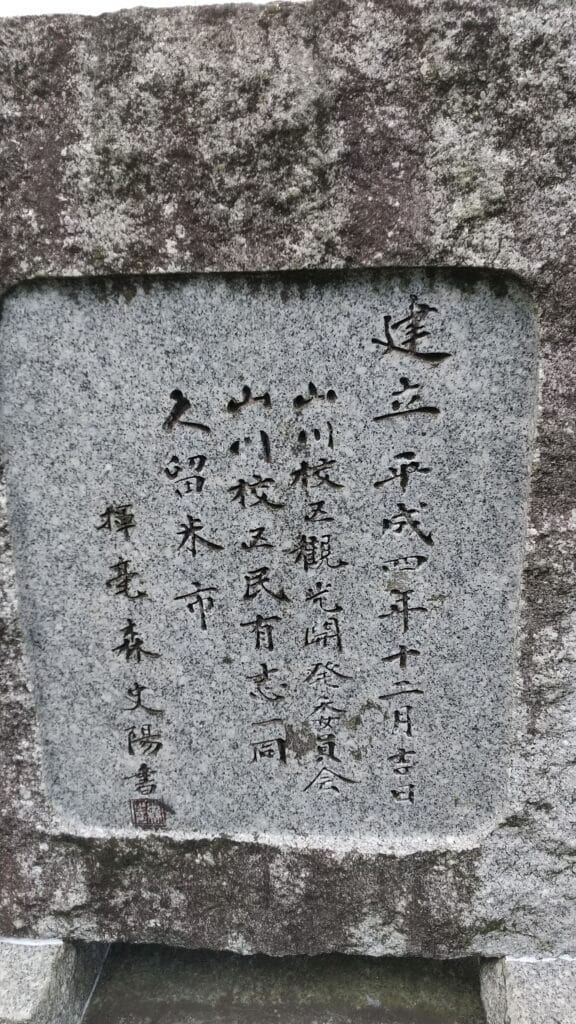 建立平成四年十二月吉日
山川校区観光開発委員会
山川校区民有志一同
久留米市
揮毫森文陽書